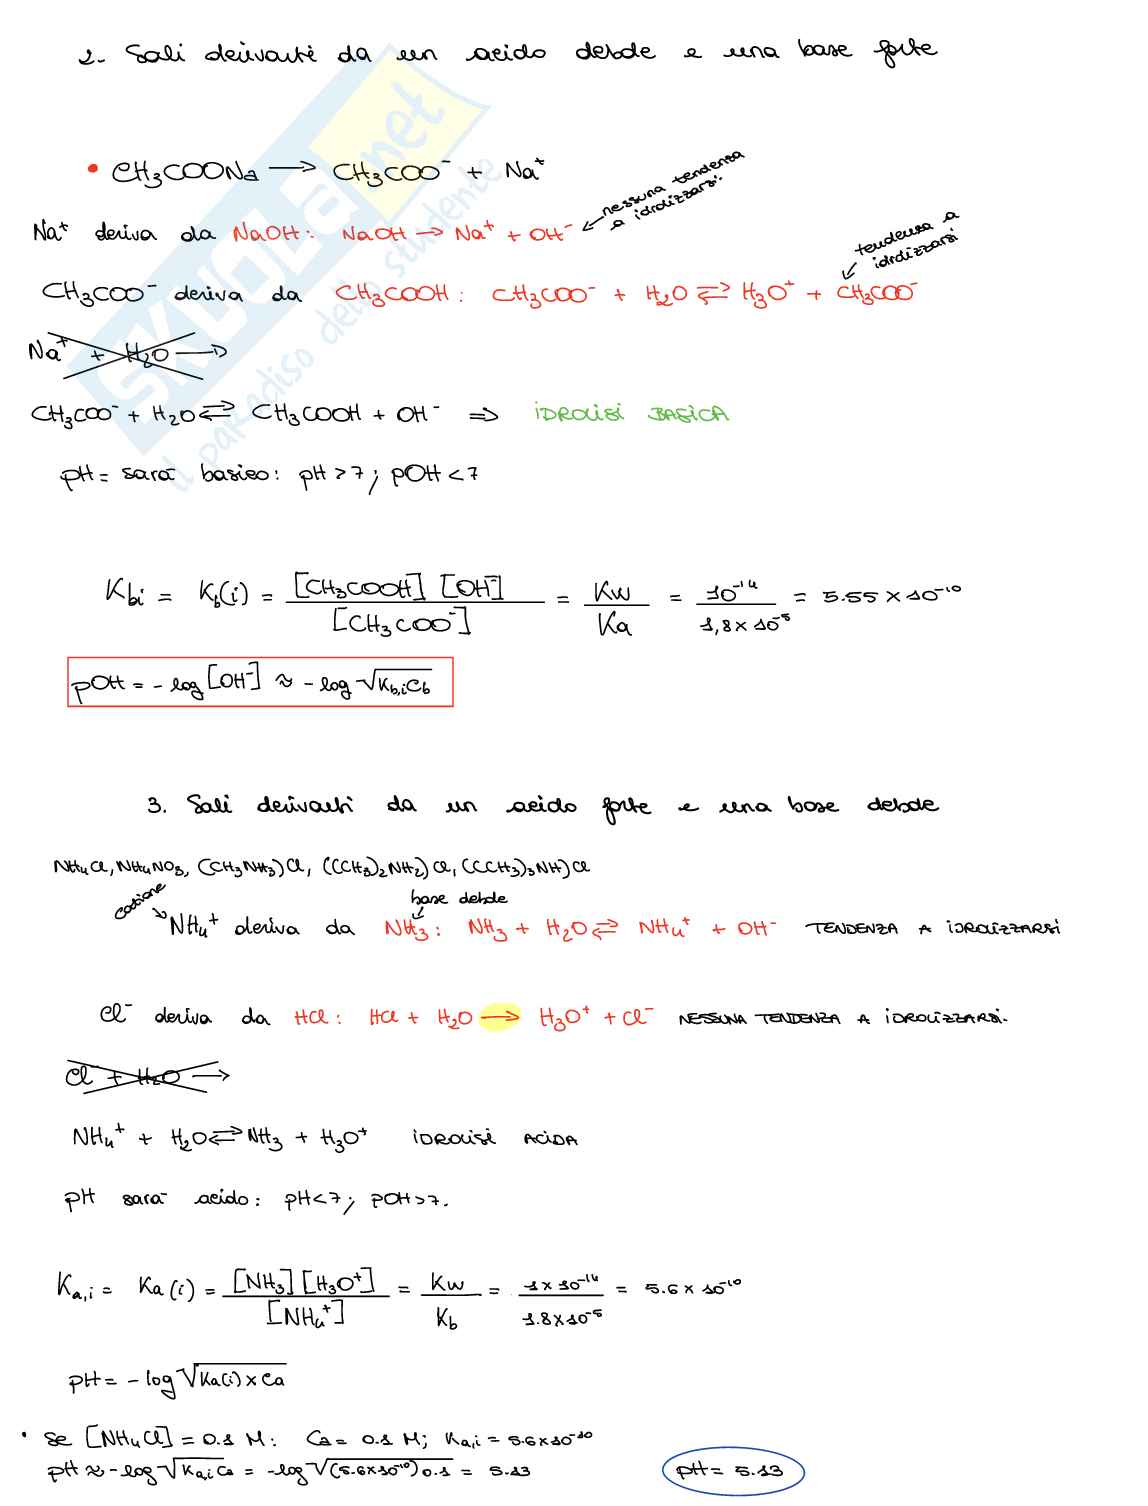 2- Sali derivanti da un acido debole e una base forte
• CH₃COONa → CH₃COO⁻ + Na⁺
Na⁺ deriva da NaOH: NaOH → Na⁺ + OH⁻ ↙ nessuna tendenza a idrolizzarsi.
CH₃COO⁻ deriva da CH₃COOH: CH₃COO⁻ + H₂O ⇌ H₃O⁺ + CH₃COO⁻ ↙ tendenza a idrolizzarsi
Na⁺ + H₂O →
CH₃COO⁻ + H₂O ⇌ CH₃COOH + OH⁻ ⇒ IDROLISI BASICA
pH = sarà basico: pH > 7; pOH < 7
Kbi = Kb(i) = [CH₃COOH] [OH⁻] / [CH₃COO⁻] = Kw / Ka = 10⁻¹⁴ / 1,8 × 10⁻⁵ = 5.55 × 10⁻¹⁰
pOH = - log [OH⁻] ≈ - log √Kb,i Cb
3. Sali derivanti da un acido forte e una base debole
NH₄Cl, NH₄NO₃, (CH₃NH₃)Cl, ((CH₃)₂NH₂)Cl, ((CH₃)₃NH)Cl
catione base debole
NH₄⁺ deriva da NH₃: NH₃ + H₂O ⇌ NH₄⁺ + OH⁻ TENDENZA A IDROLIZZARSI
Cl⁻ deriva da HCl: HCl + H₂O → H₃O⁺ + Cl⁻ NESSUNA TENDENZA A IDROLIZZARSI.
Cl⁻ + H₂O →
NH₄⁺ + H₂O ⇌ NH₃ + H₃O⁺ IDROLISI ACIDA
pH sarà acido: pH < 7; pOH > 7.
Ka,i = Ka(i) = [NH₃] [H₃O⁺] / [NH₄⁺] = Kw / Kb = 1 × 10⁻¹⁴ / 1.8 × 10⁻⁵ = 5.6 × 10⁻¹⁰
pH = - log √Ka(i) × Ca
• se [NH₄Cl] = 0.1 M: Ca = 0.1 M; Ka,i = 5.6 × 10⁻¹⁰
pH ≈ - log √Ka,i Ca = - log √(5.6 × 10⁻¹⁰) 0.1 = 5.13 pH = 5.13
SKUOLA.net
il paradiso dello studente